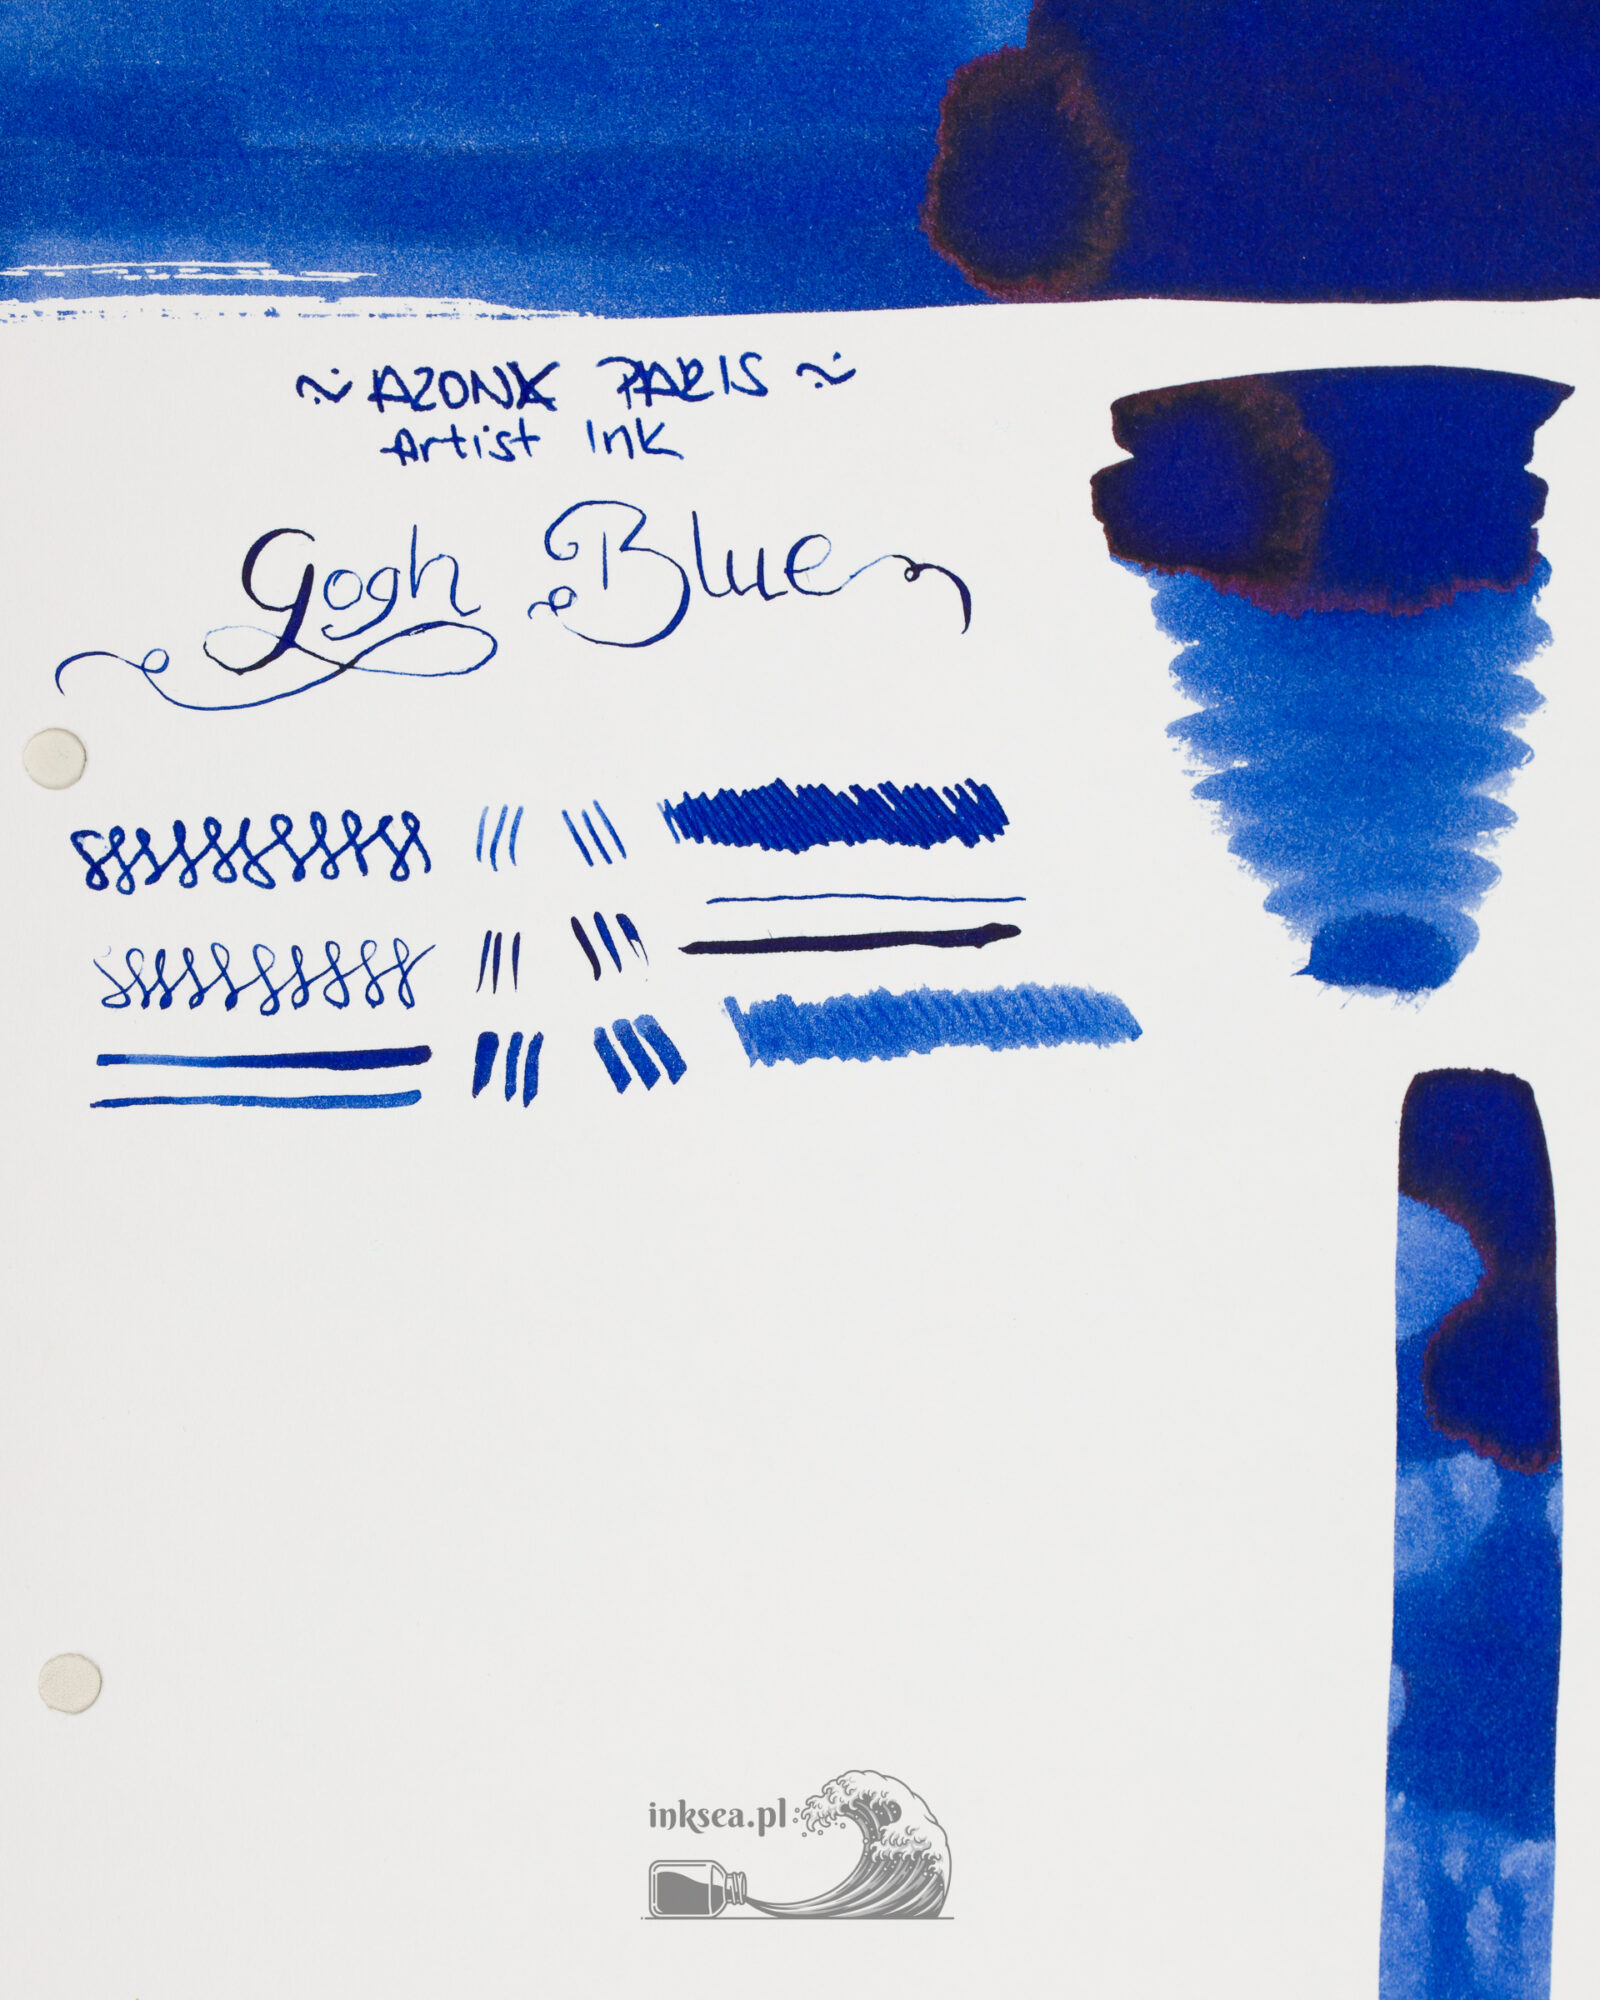 ~ AZONX PARIS ~
Artist Ink
Gogh Blue
inksea.pl